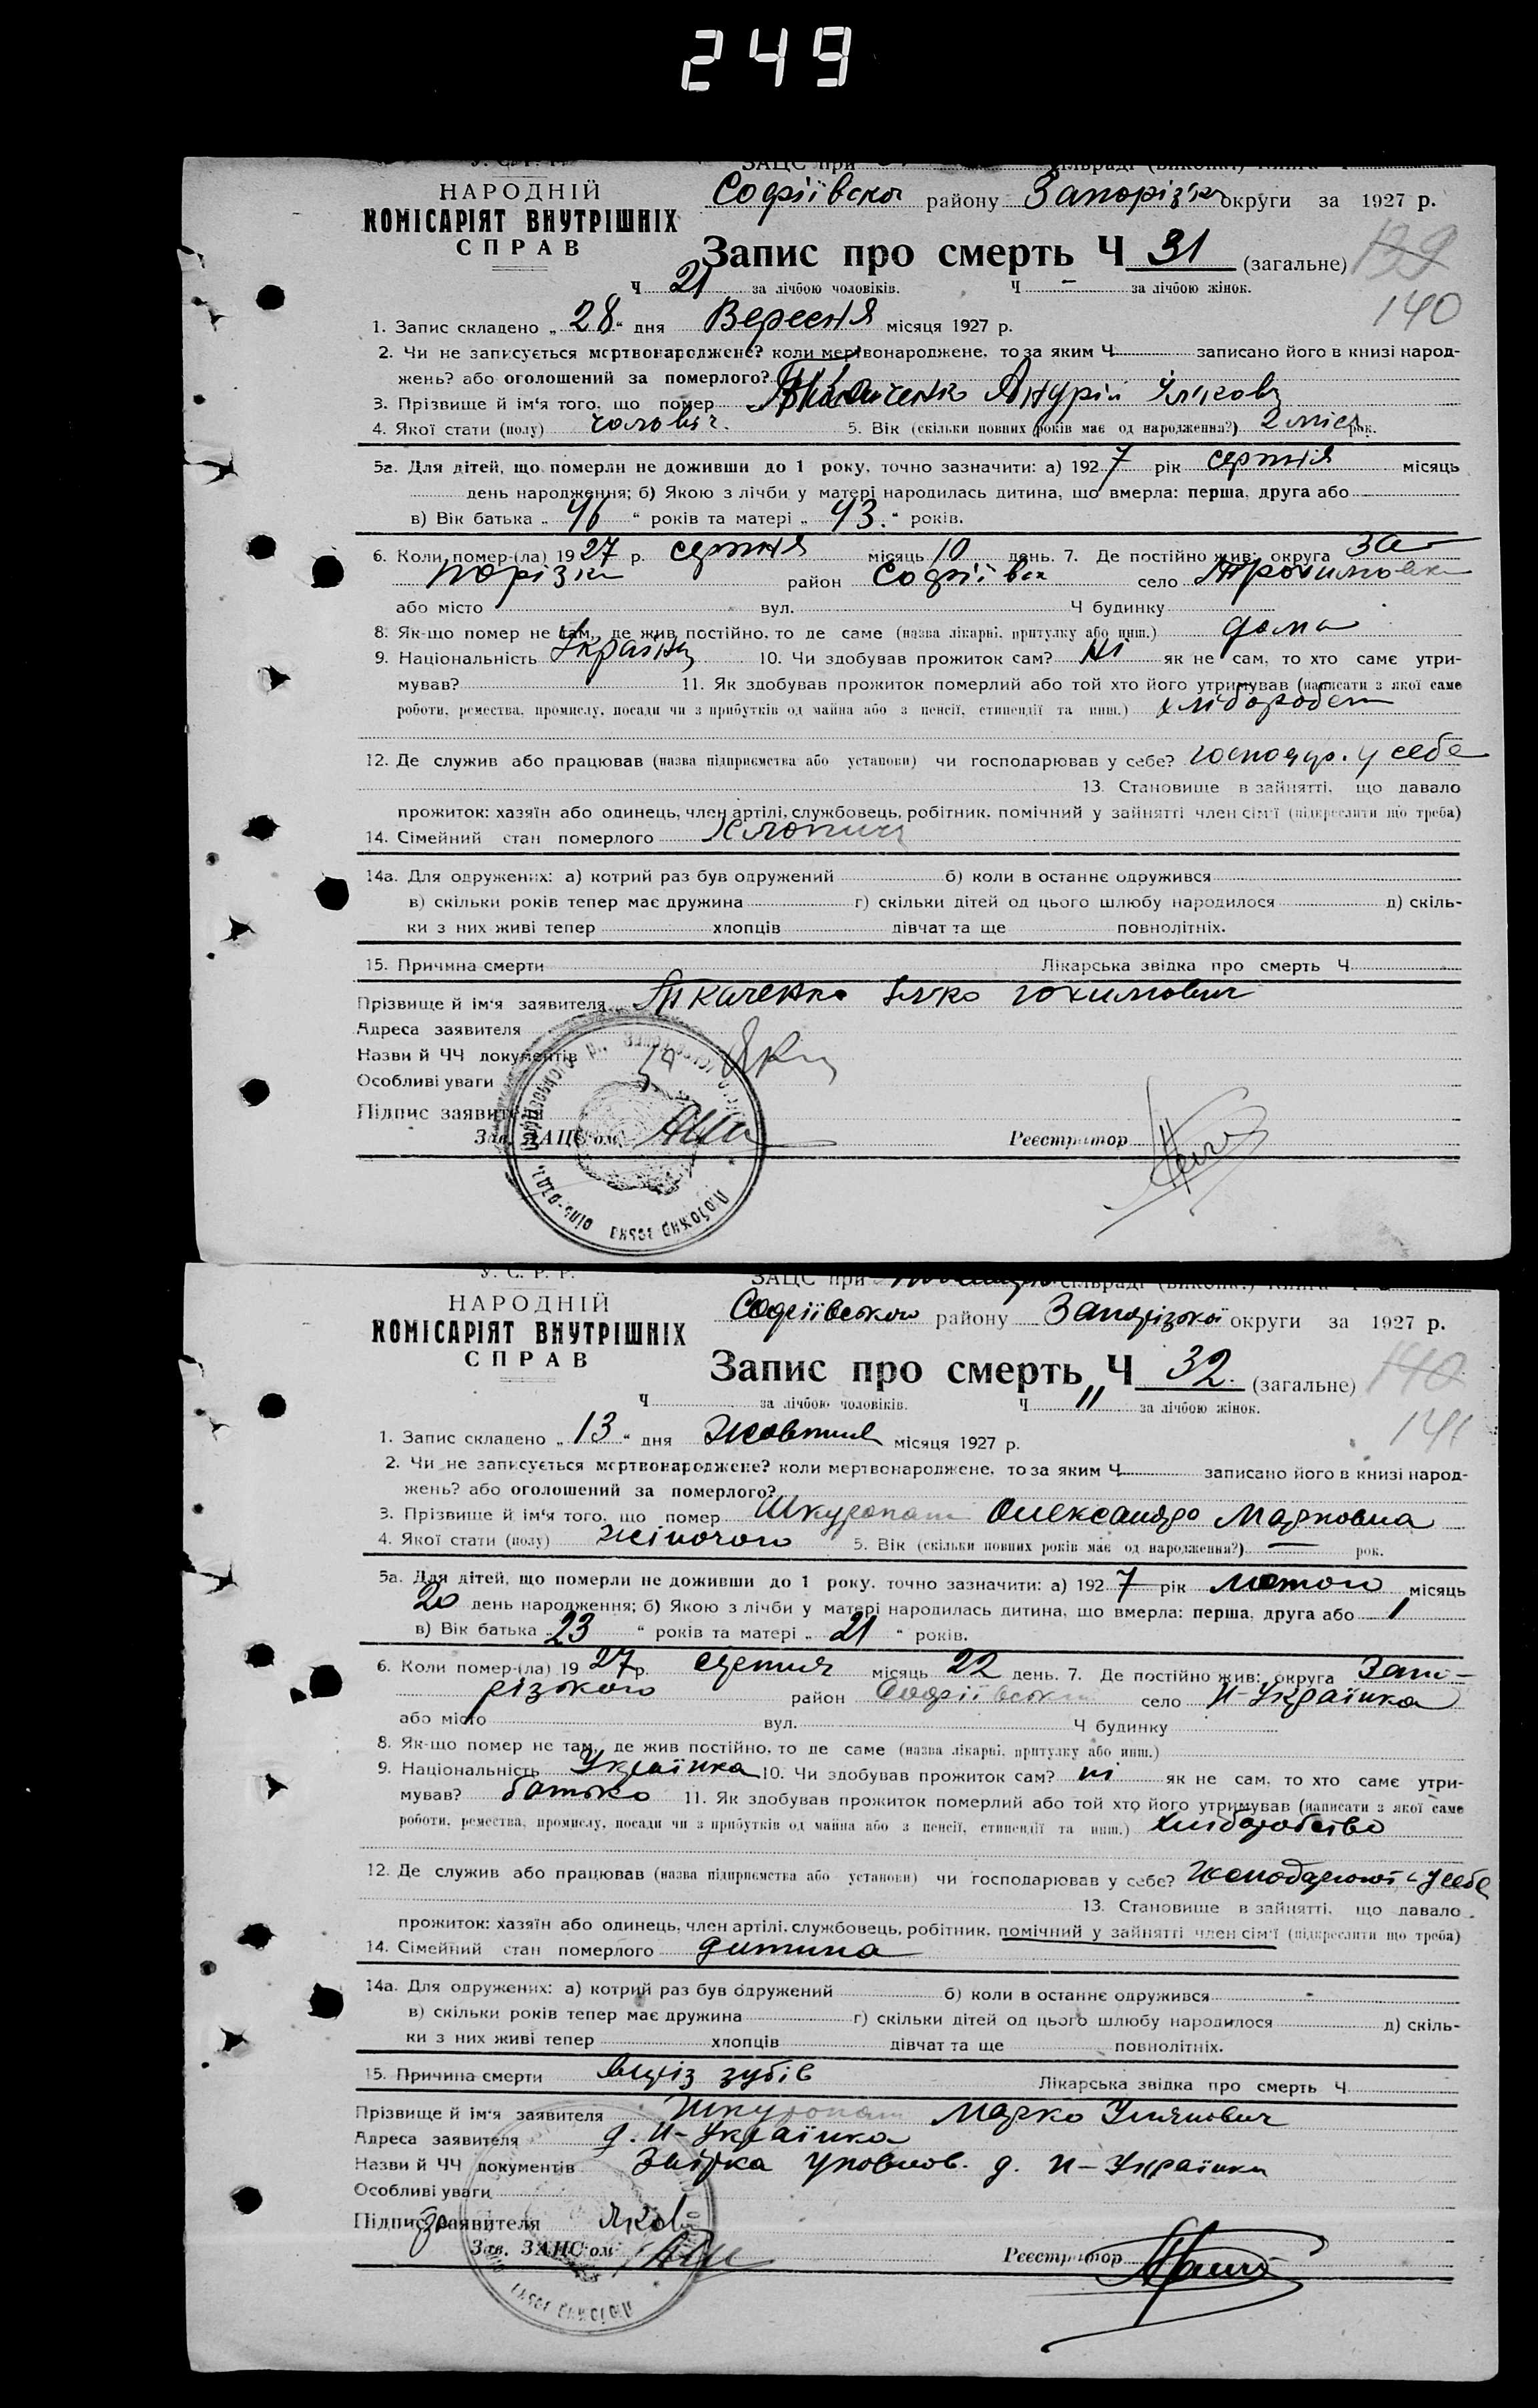 249
У. С. Р. Р.
НАРОДНІЙ
КОМІСАРІЯТ ВНУТРІШНІХ
СПРАВ
ЗАЦС при сільраді (виконк.) книга Ч
Софіївськ району Запорізьк округи за 1927 р.
Запис про смерть Ч 31 (загальне) 139
140
Ч 21 за лічбою чоловіків. Ч - за лічбою жінок.
1. Запис складено „ 28 “ дня Вересня місяця 1927 р.
2. Чи не записується мертвонароджене? коли мертвонароджене, то за яким Ч записано його в книзі народ-
жень? або оголошений за померлого?
3. Прізвище й ім‘я того, що помер Ткаченко Андрій
4. Якої стати (полу) чоловіч. 5. Вік (скільки повних років має од народження?) 2 міся рок.
5а. Для дітей, що померли не доживши до 1 року, точно зазначити: а) 1927 рік серпня місяць
день народження; б) Якою з лічби у матері народилась дитина, що вмерла: перша, друга або
в) Вік батька „ 46 “ років та матері „ 43. “ років.
6. Коли помер-(ла) 1927 р. серпня місяць 10 день. 7. Де постійно жив: округа За-
порізьк район Софіївськ село
або місто вул. Ч будинку
8. Як-що помер не там, де жив постійно, то де саме (назва лікарні, притулку або инш.) дома
9. Національність Українц 10. Чи здобував прожиток сам? ні як не сам, то хто саме утри-
мував? 11. Як здобував прожиток померлий або той хто його утримував (написати з якої саме
роботи, ремества, промислу, посади чи з прибутків од майна або з пенсії, стипендії та инш.) хлібороб
12. Де служив або працював (назва підприємства або установи) чи господарював у себе? господар. у себе
13. Становище в зайнятті, що давало
прожиток: хазяїн або одинець, член артілі, службовець, робітник, помічний у зайнятті член сім‘ї (підкреслити що треба)
14. Сімейний стан померлого хлопчик
14а. Для одружених: а) котрий раз був одружений б) коли в останнє одружився
в) скільки років тепер має дружина г) скільки дітей од цього шлюбу народилося д) скіль-
ки з них живі тепер хлопців дівчат та ще повнолітніх.
15. Причина смерти Лікарська звідка про смерть Ч
Прізвище й ім‘я заявителя Ткаченко Ілько Юхимович
Адреса заявителя
Назви й ЧЧ документів
Особливі уваги
Підпис заявителя
Зав. ЗАЦС‘ом Реєстратор
У. С. Р. Р.
НАРОДНІЙ
КОМІСАРІЯТ ВНУТРІШНІХ
СПРАВ
ЗАЦС при сільраді (виконк.) книга Ч
Софіївського району Запорізької округи за 1927 р.
Запис про смерть Ч 32. (загальне) 140
141
Ч за лічбою чоловіків. Ч 11 за лічбою жінок.
1. Запис складено „ 13 “ дня Жовтня місяця 1927 р.
2. Чи не записується мертвонароджене? коли мертвонароджене, то за яким Ч записано його в книзі народ-
жень? або оголошений за померлого?
3. Прізвище й ім‘я того, що помер Шкуропат Олександра Марковна
4. Якої стати (полу) жіночого 5. Вік (скільки повних років має од народження?) — рок.
5а. Для дітей, що померли не доживши до 1 року, точно зазначити: а) 1927 рік лютого місяць
20 день народження; б) Якою з лічби у матері народилась дитина, що вмерла: перша, друга або 1
в) Вік батька „ 23 “ років та матері „ 21 “ років.
6. Коли помер-(ла) 1927 р. серпня місяць 22 день. 7. Де постійно жив: округа Запо-
різького район Софіївськ село Н-Українка
або місто вул. Ч будинку
8. Як-що помер не там, де жив постійно, то де саме (назва лікарні, притулку або инш.)
9. Національність Українка 10. Чи здобував прожиток сам? ні як не сам, то хто саме утри-
мував? батько 11. Як здобував прожиток померлий або той хто його утримував (написати з якої саме
роботи, ремества, промислу, посади чи з прибутків од майна або з пенсії, стипендії та инш.) хліборобство
12. Де служив або працював (назва підприємства або установи) чи господарював у себе? у себе
13. Становище в зайнятті, що давало
прожиток: хазяїн або одинець, член артілі, службовець, робітник, помічний у зайнятті член сім‘ї (підкреслити що треба)
14. Сімейний стан померлого дитина
14а. Для одружених: а) котрий раз був одружений б) коли в останнє одружився
в) скільки років тепер має дружина г) скільки дітей од цього шлюбу народилося д) скіль-
ки з них живі тепер хлопців дівчат та ще повнолітніх.
15. Причина смерти виріз зубів Лікарська звідка про смерть Ч
Прізвище й ім‘я заявителя Шкуропат Марко Улянович
Адреса заявителя д. Н-Українка
Назви й ЧЧ документів Звірка уповнов. д. Н-Українки
Особливі уваги
Підпис заявителя
Зав. ЗАЦС‘ом Реєстратор